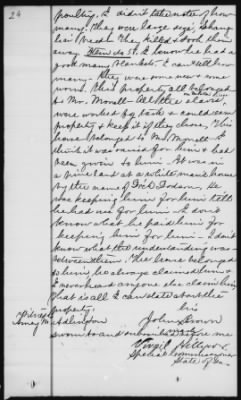 24
poultry. I didn't take note of how
many. They were large size. Taking
his meat they killed & took them
away. Item No 5. I know he had a
good many blankets. I can't tell how
many. They were some new & some
worn. This property all belonged
to Mr. Morrell. All the slaves
were worked by task & could own
property & keep it if they chose. This
horse belonged to Mr. Morrell. I
think it was raised for him & had
been given to him. It was in
a pine land at a white man's house
by the name of
was keeping him for him. tell
he had use for him. I don't
know what he paid him for
keeping him for him. I don't
know what the understanding was
between them. The horse belonged
to him, he always claimed him &
I never heard any one claim him.
That is all I can state about the
property
his
John Brown
mark
sworn to and subscribed before me
Virgil Hillyer
Special Commissioner
State of Ga.